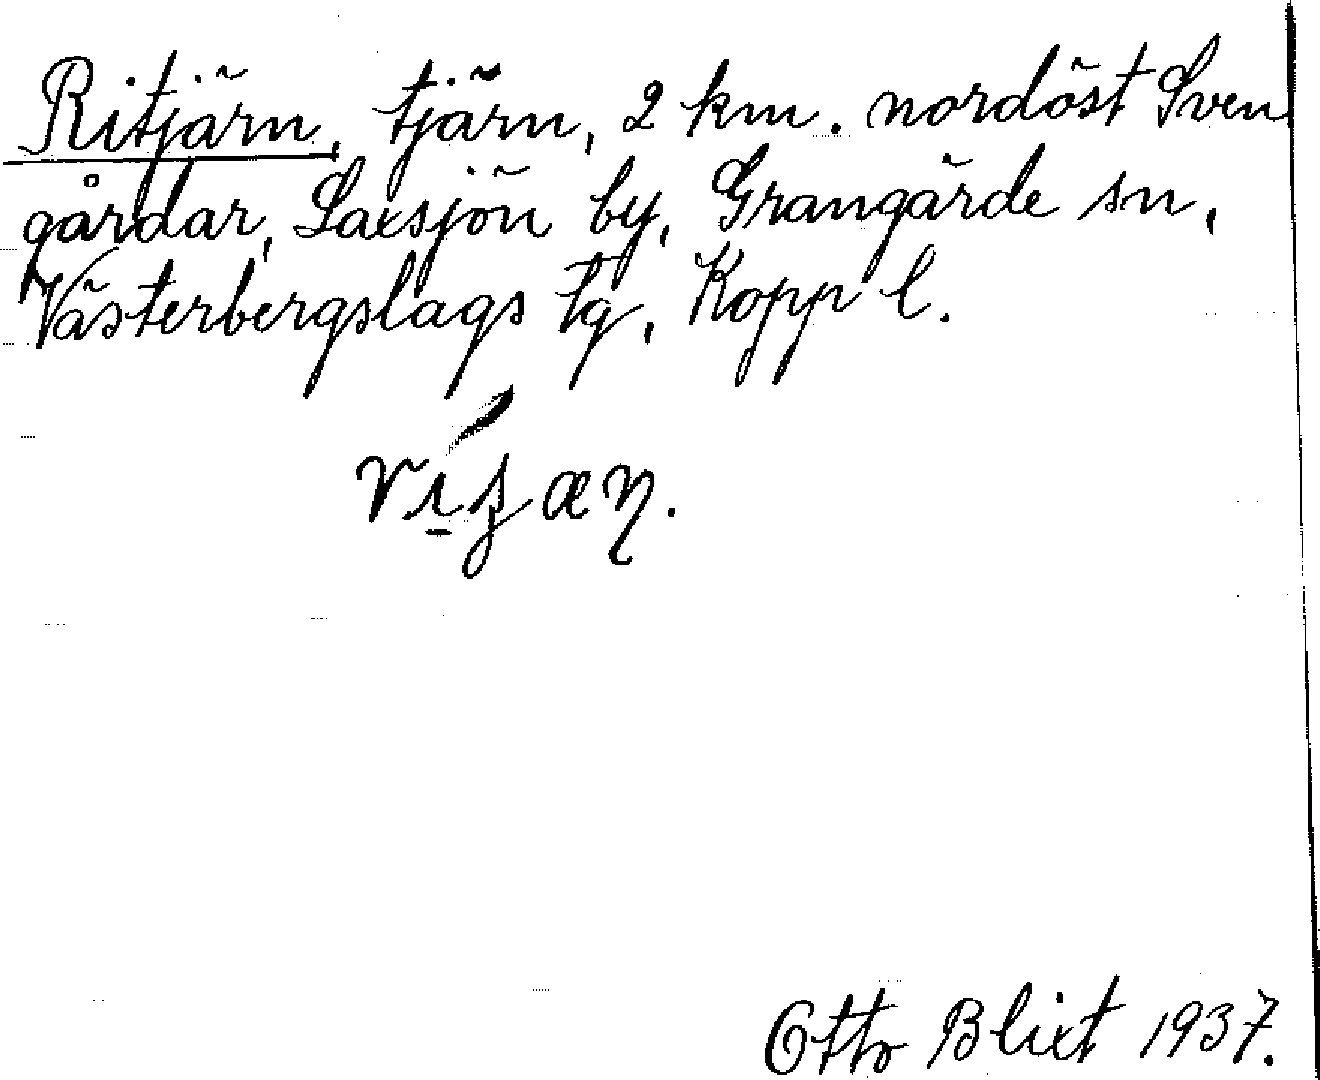 Ritjärn, tjärn, 2 km. nordöst Sven
gårdar, Laxsjön by, Grangärde sn,
Västerbergslags tg, Kopp l.
Otto Blixt 1937.